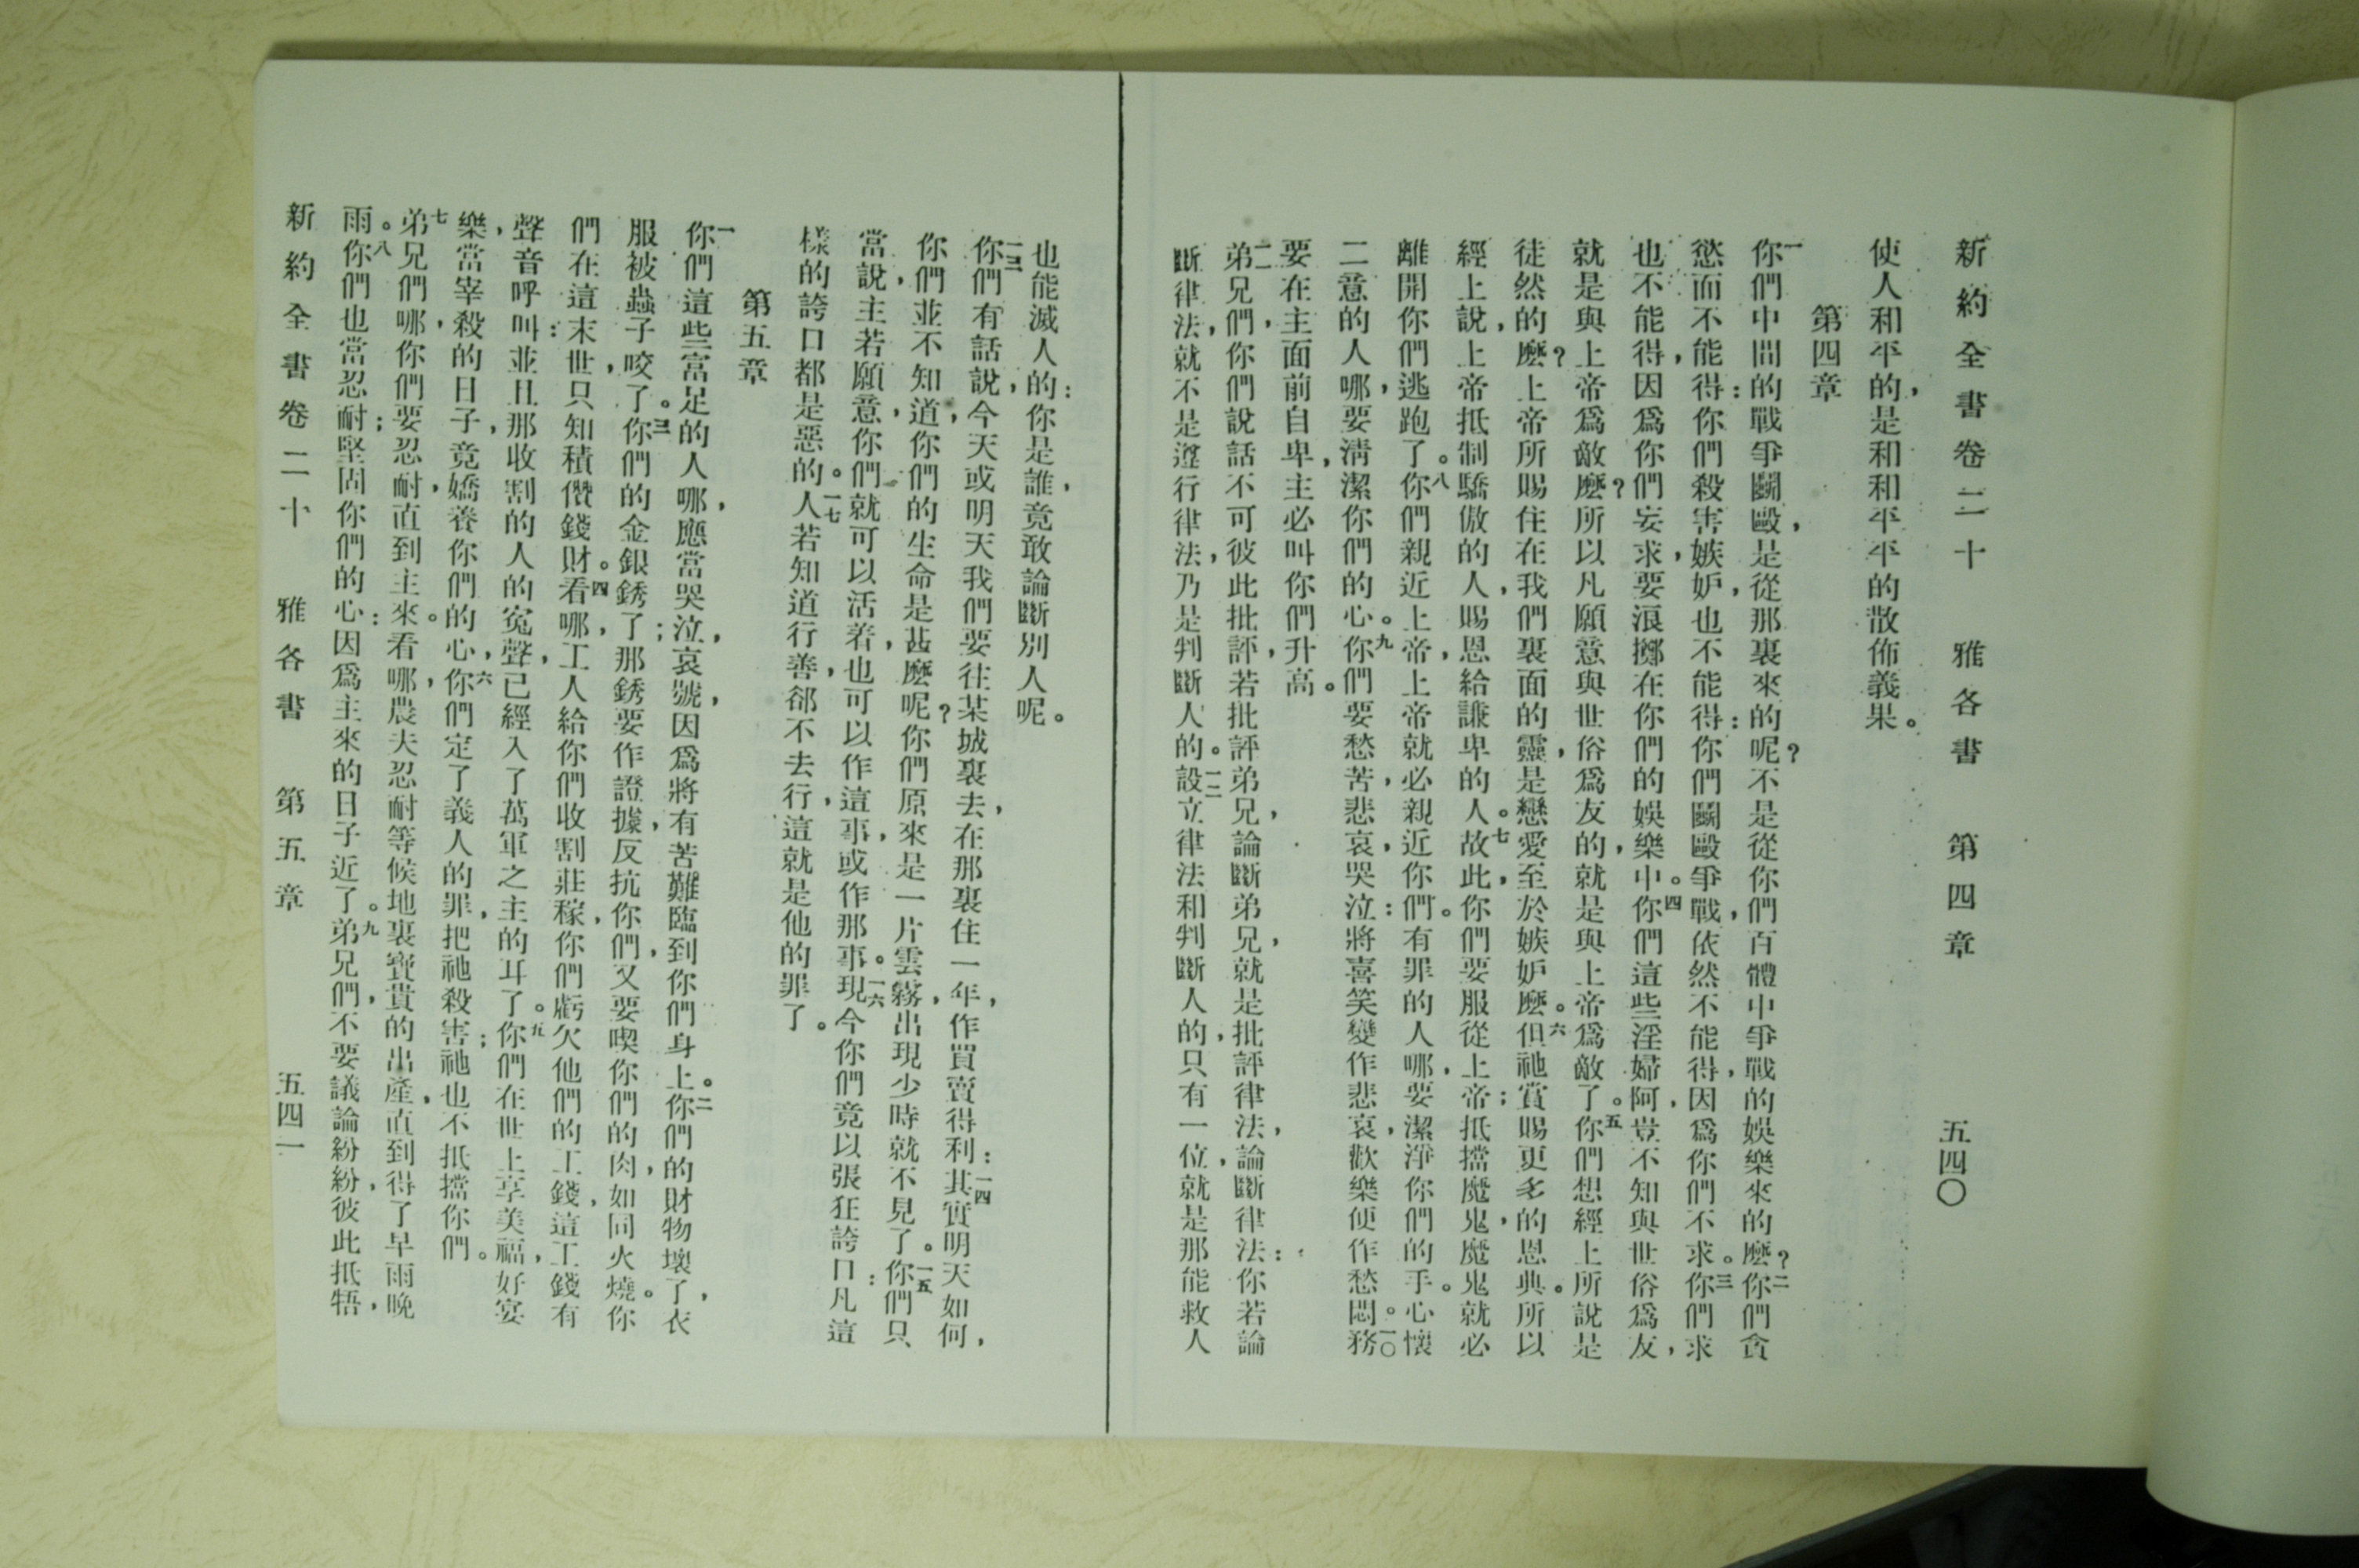 新約全書卷二十 雅各書 第四章 五四〇
使人和平的，是和和平平的散佈義果。
第四章
一你們中間的戰爭鬬毆，是從那裏來的呢？不是從你們百體中爭戰的娛樂來的麽？二你們貪
慾而不能得：你們殺害嫉妒，也不能得：你們鬬毆爭戰，依然不能得，因爲你們不求。三你們求
也不能得，因爲你們妄求，要浪擲在你們的娛樂中。四你們這些淫婦阿，豈不知與世俗爲友，
就是與上帝爲敵麽？所以凡願意與世俗爲友的，就是與上帝爲敵了。五你們想經上所說是
徒然的麽？上帝所賜住在我們裏面的靈，是戀愛至於嫉妒麽。六但祂賞賜更多的恩典。所以
經上說，上帝抵制驕傲的人，賜恩給謙卑的人。七故此，你們要服從上帝；抵擋魔鬼，魔鬼就必
離開你們逃跑了。八你們親近上帝，上帝就必親近你們。有罪的人哪，要潔淨你們的手。心懷
二意的人哪，要清潔你們的心。九你們要愁苦，悲哀，哭泣：將喜笑變作悲哀，歡樂便作愁悶。一〇務
要在主面前自卑，主必叫你們升高。
一一弟兄們，你們說話不可彼此批評，若批評弟兄，論斷弟兄，就是批評律法，論斷律法：你若論
斷律法，就不是遵行律法，乃是判斷人的。一二設立律法和判斷人的，只有一位，就是那能救人
也能滅人的：你是誰，竟敢論斷別人呢。
一三你們有話說，今天或明天我們要往某城裏去，在那裏住一年，作買賣得利：一四其實明天如何，
你們並不知道，你們的生命是甚麽呢？你們原來是一片雲霧，出現少時就不見了。一五你們只
當說，主若願意，你們就可以活着，也可以作這事，或作那事。一六現今你們竟以張狂誇口：凡這
樣的誇口都是惡的。一七人若知道行善，卻不去行，這就是他的罪了。
第五章
一你們這些富足的人哪，應當哭泣，哀號，因爲將有苦難臨到你們身上。二你們的財物壞了，衣
服被蟲子咬了。三你們的金銀銹了；那銹要作證據，反抗你們，又要喫你們的肉，如同火燒。你
們在這末世，只知積儹錢財。四看哪，工人給你們收割莊稼，你們虧欠他們的工錢，這工錢有
聲音呼叫：並且那收割的人的冤聲，已經入了萬軍之主的耳了。五你們在世上享美福，好宴
樂，當宰殺的日子，竟嬌養你們的心，六你們定了義人的罪，把祂殺害；祂也不抵擋你們。
七弟兄們哪，你們要忍耐，直到主來。看哪，農夫忍耐等候地裏寶貴的出產，直到得了早雨晚
雨。八你們也當忍耐；堅固你們的心：因爲主來的日子近了。九弟兄們，不要議論紛紛，彼此抵牾，
新約全書卷二十 雅各書 第五章 五四一